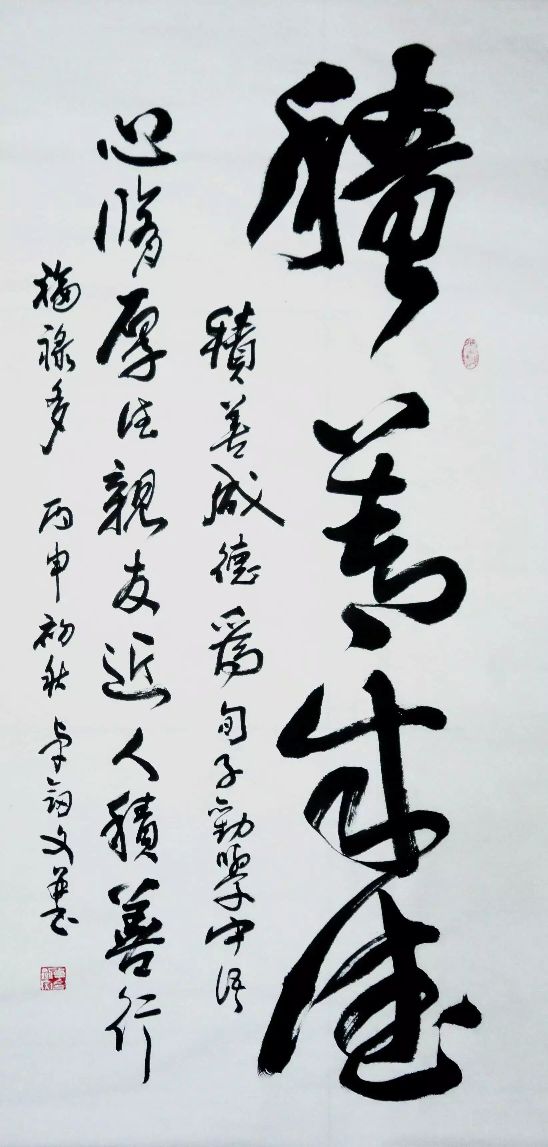 積善成德
積善成德爲旬子勸學中語
心脩厚德親友近人積善行
福祿多 丙申初秋 文并書